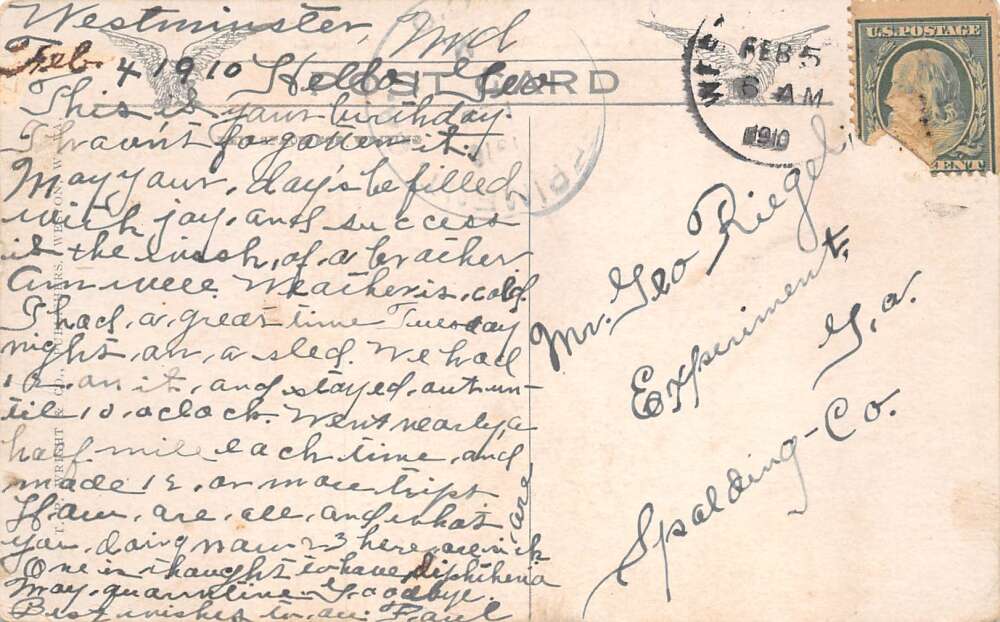 Westminster, Md
Feb. 4 1910 Hello Geo
POST CARD
This is your birthday.
I havn't forgotten it.
May your, day's be filled
with joy, and success
is the wish, of, a brother
Our weather is, cold.
I had, a, great time Tuesday
night, on, a sled. We had
on it, and stayed, out un-
til 10, oclock. Went nearly, a
half mile each time, and,
made 12, or more trips.
How, are, all, and what, are
you, doing now 23 here, are sick
One is thought to have, diphtheria
May, quarantine. Goodbye.
Best wishes to all. Paul
FEB 5
6 AM
1910
U.S. POSTAGE
CENT
Mr. Geo Riegel,
Experiment,
G,a.
Spalding-Co.